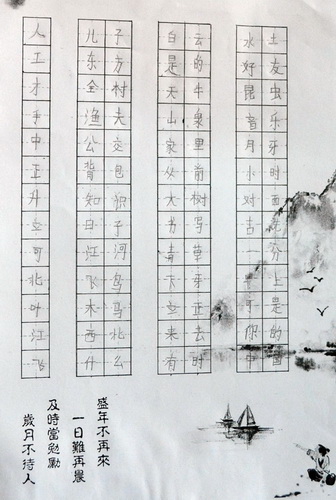 人
工
才
手
中
正
升
立
可
北
叶
江
飞
儿子
东方
全村
渔夫
公交
背包
知识
日子
江河
飞鸟
木马
西北
什么
白云
是的
天牛
山泉
家里
从前
大树
书写
青草
下
立正
来去
有时
水土
好友
昆虫
音乐
月牙
小时
对面
古
一分
上
于是
你的
中国
盛年不再來
一日難再晨
及時當勉勵
歲月不待人